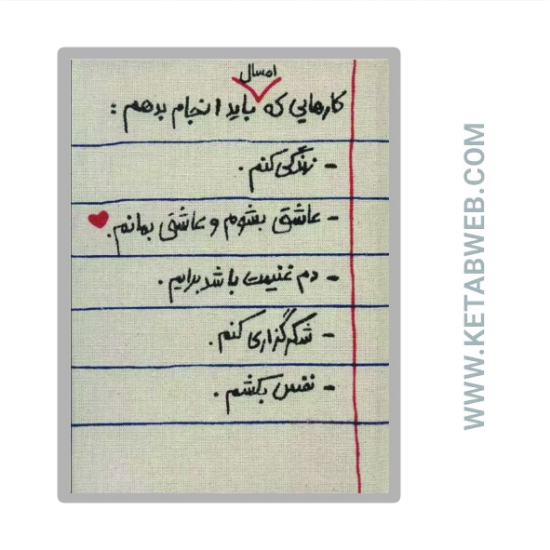 امسال
کارهایی که باید انجام بدهم :
- زندگی کنم .
- عاشق بشوم و عاشق بمانم .
- دم غنیمت باشد برایم .
- شکرگزاری کنم .
- نفس بکشم .
WWW.KETABWEB.COM